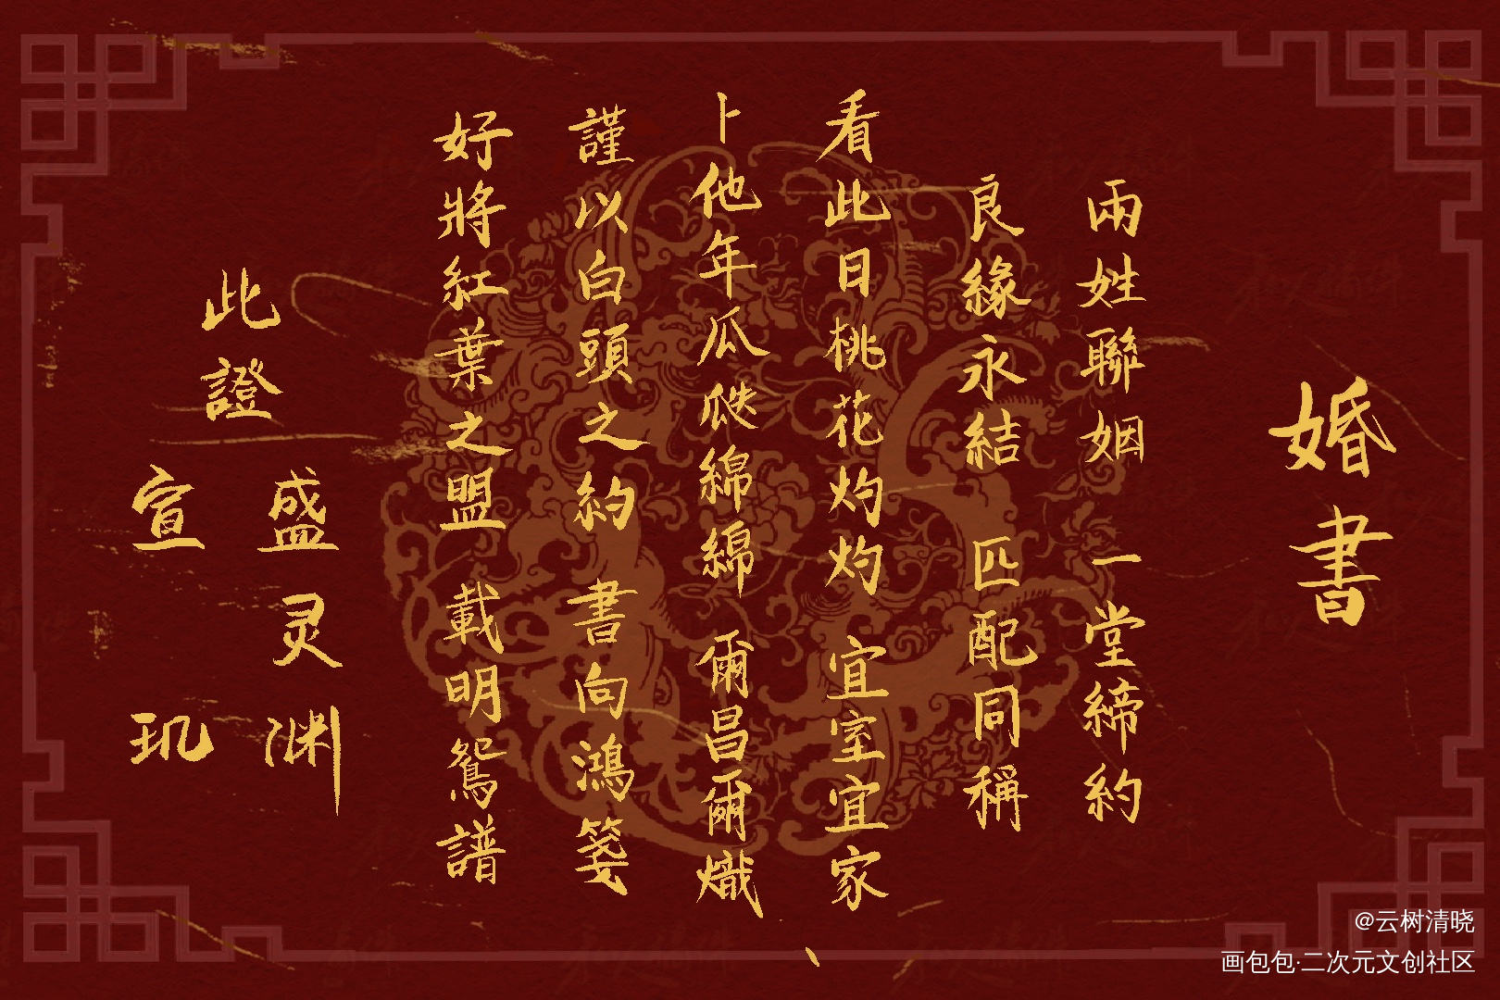 婚書
兩姓聯姻 一堂締約
良緣永結 匹配同稱
看此日桃花灼灼 宜室宜家
卜他年瓜瓞綿綿 爾昌爾熾
謹以白頭之約 書向鴻箋
好將紅葉之盟 載明鴛譜
此證
盛灵渊
宣玑
@云树清晓
画包包·二次元文创社区